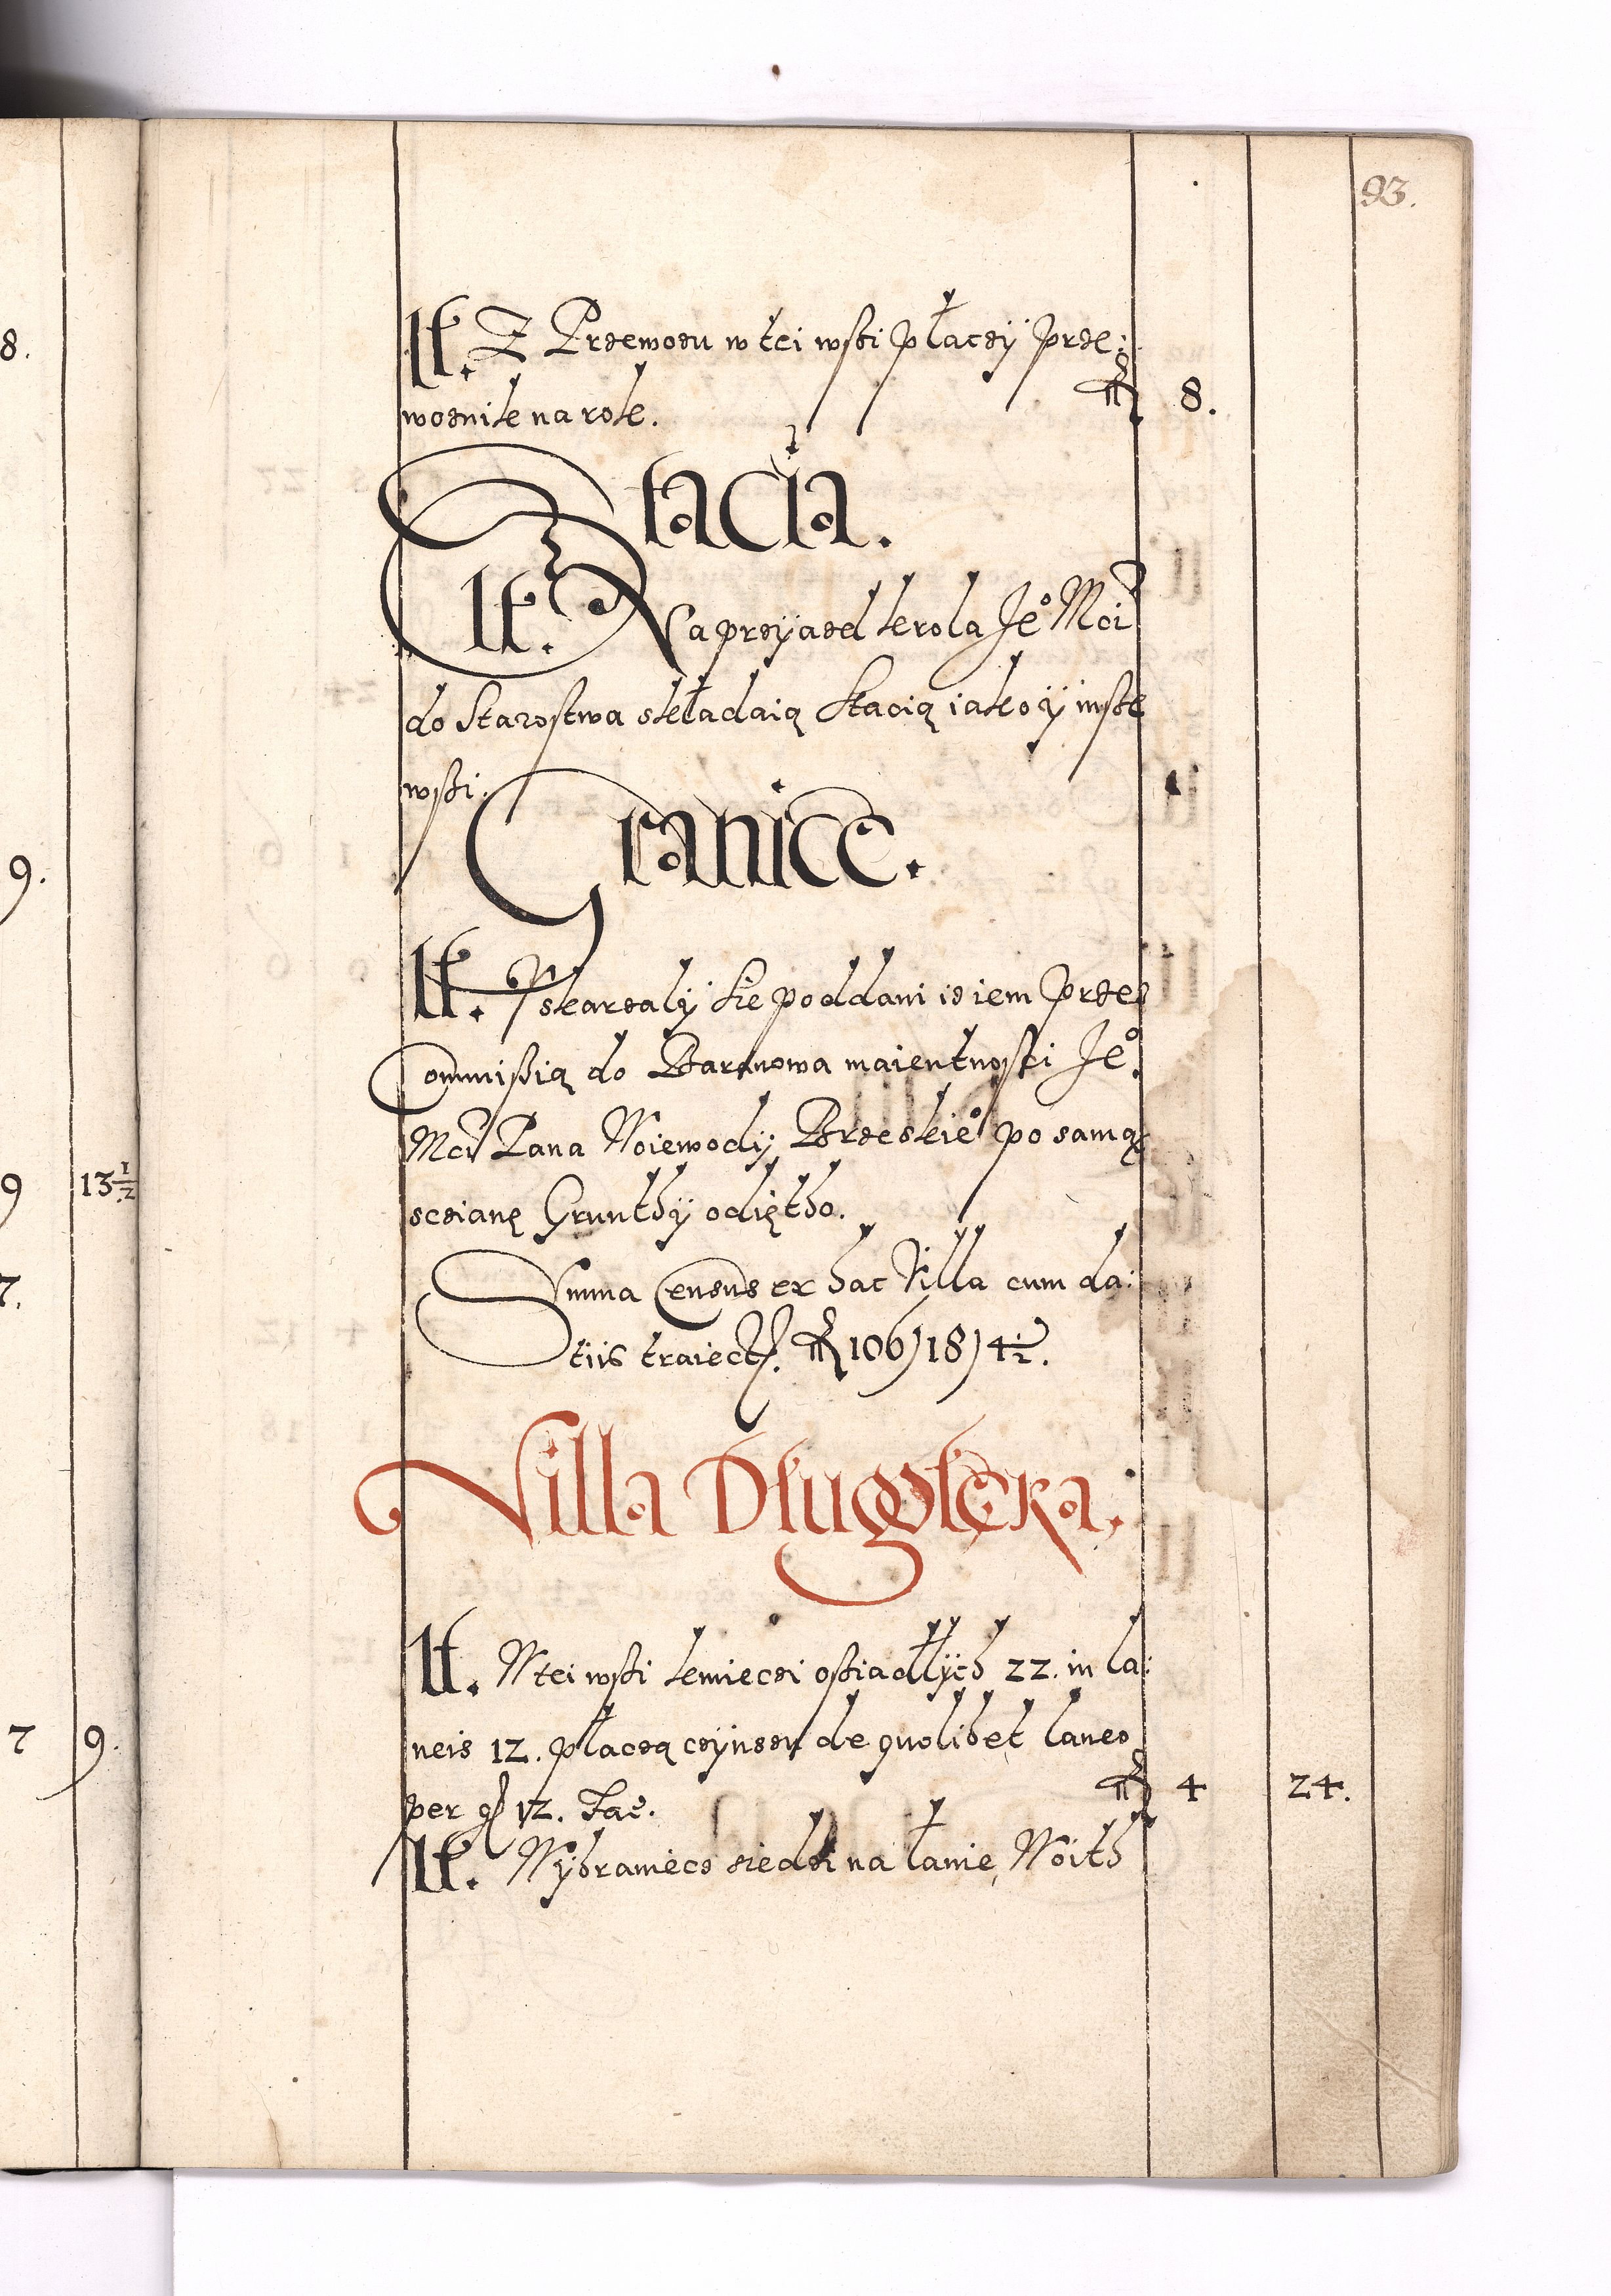 93.
It. Z Przewozu w tei wsßi płaczÿ prze:
woznik na rok. fl 8.
Stacia.
It. Na przÿazd krola Je° Mci
do Starostwa składaią Stacią iako ÿ insße
wsßi.
Granice.
It. Vskarzalÿ sie poddani iz iem przez
Commißią do Baranowa maientnosci Je°
Mci Pana Woiewodÿ Brzeskie° po samą
sczianę Grunthÿ odięto.
Summa Census ex hac Villa cum da:
tiis traiect. fl 106)18)4½.
Villa Długołęka.
It. W tei wsßi kmieczi oßiadłÿch 22. in la:
neis 12. płaczą czÿnsźu de quolibet laneo
per gr 12. Fac. fl 4 24.
It. Wÿbraniecz siedzi na łanie, Woith
8.
9.
9 13½
7.
7 9.